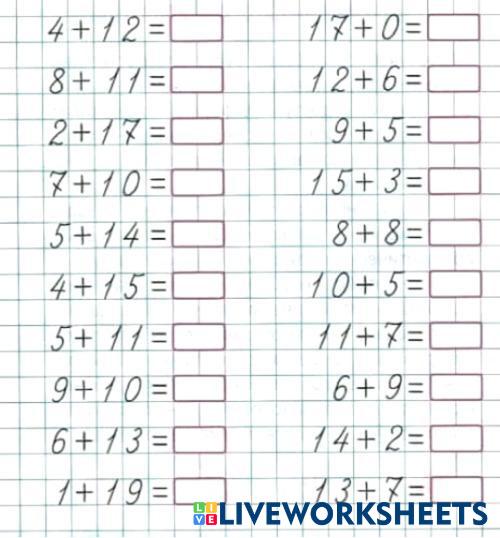 4+12= 17+0=
8+11= 12+6=
2+17= 9+5=
7+10= 15+3=
5+14= 8+8=
4+15= 10+5=
5+11= 11+7=
9+10= 6+9=
6+13= 14+2=
1+19= 13+7=
LIVE LIVEWORKSHEETS